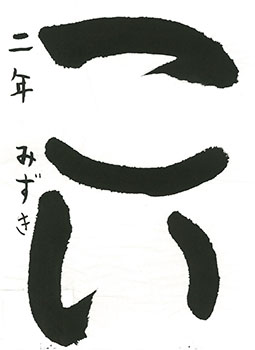 こい
二年 みずき